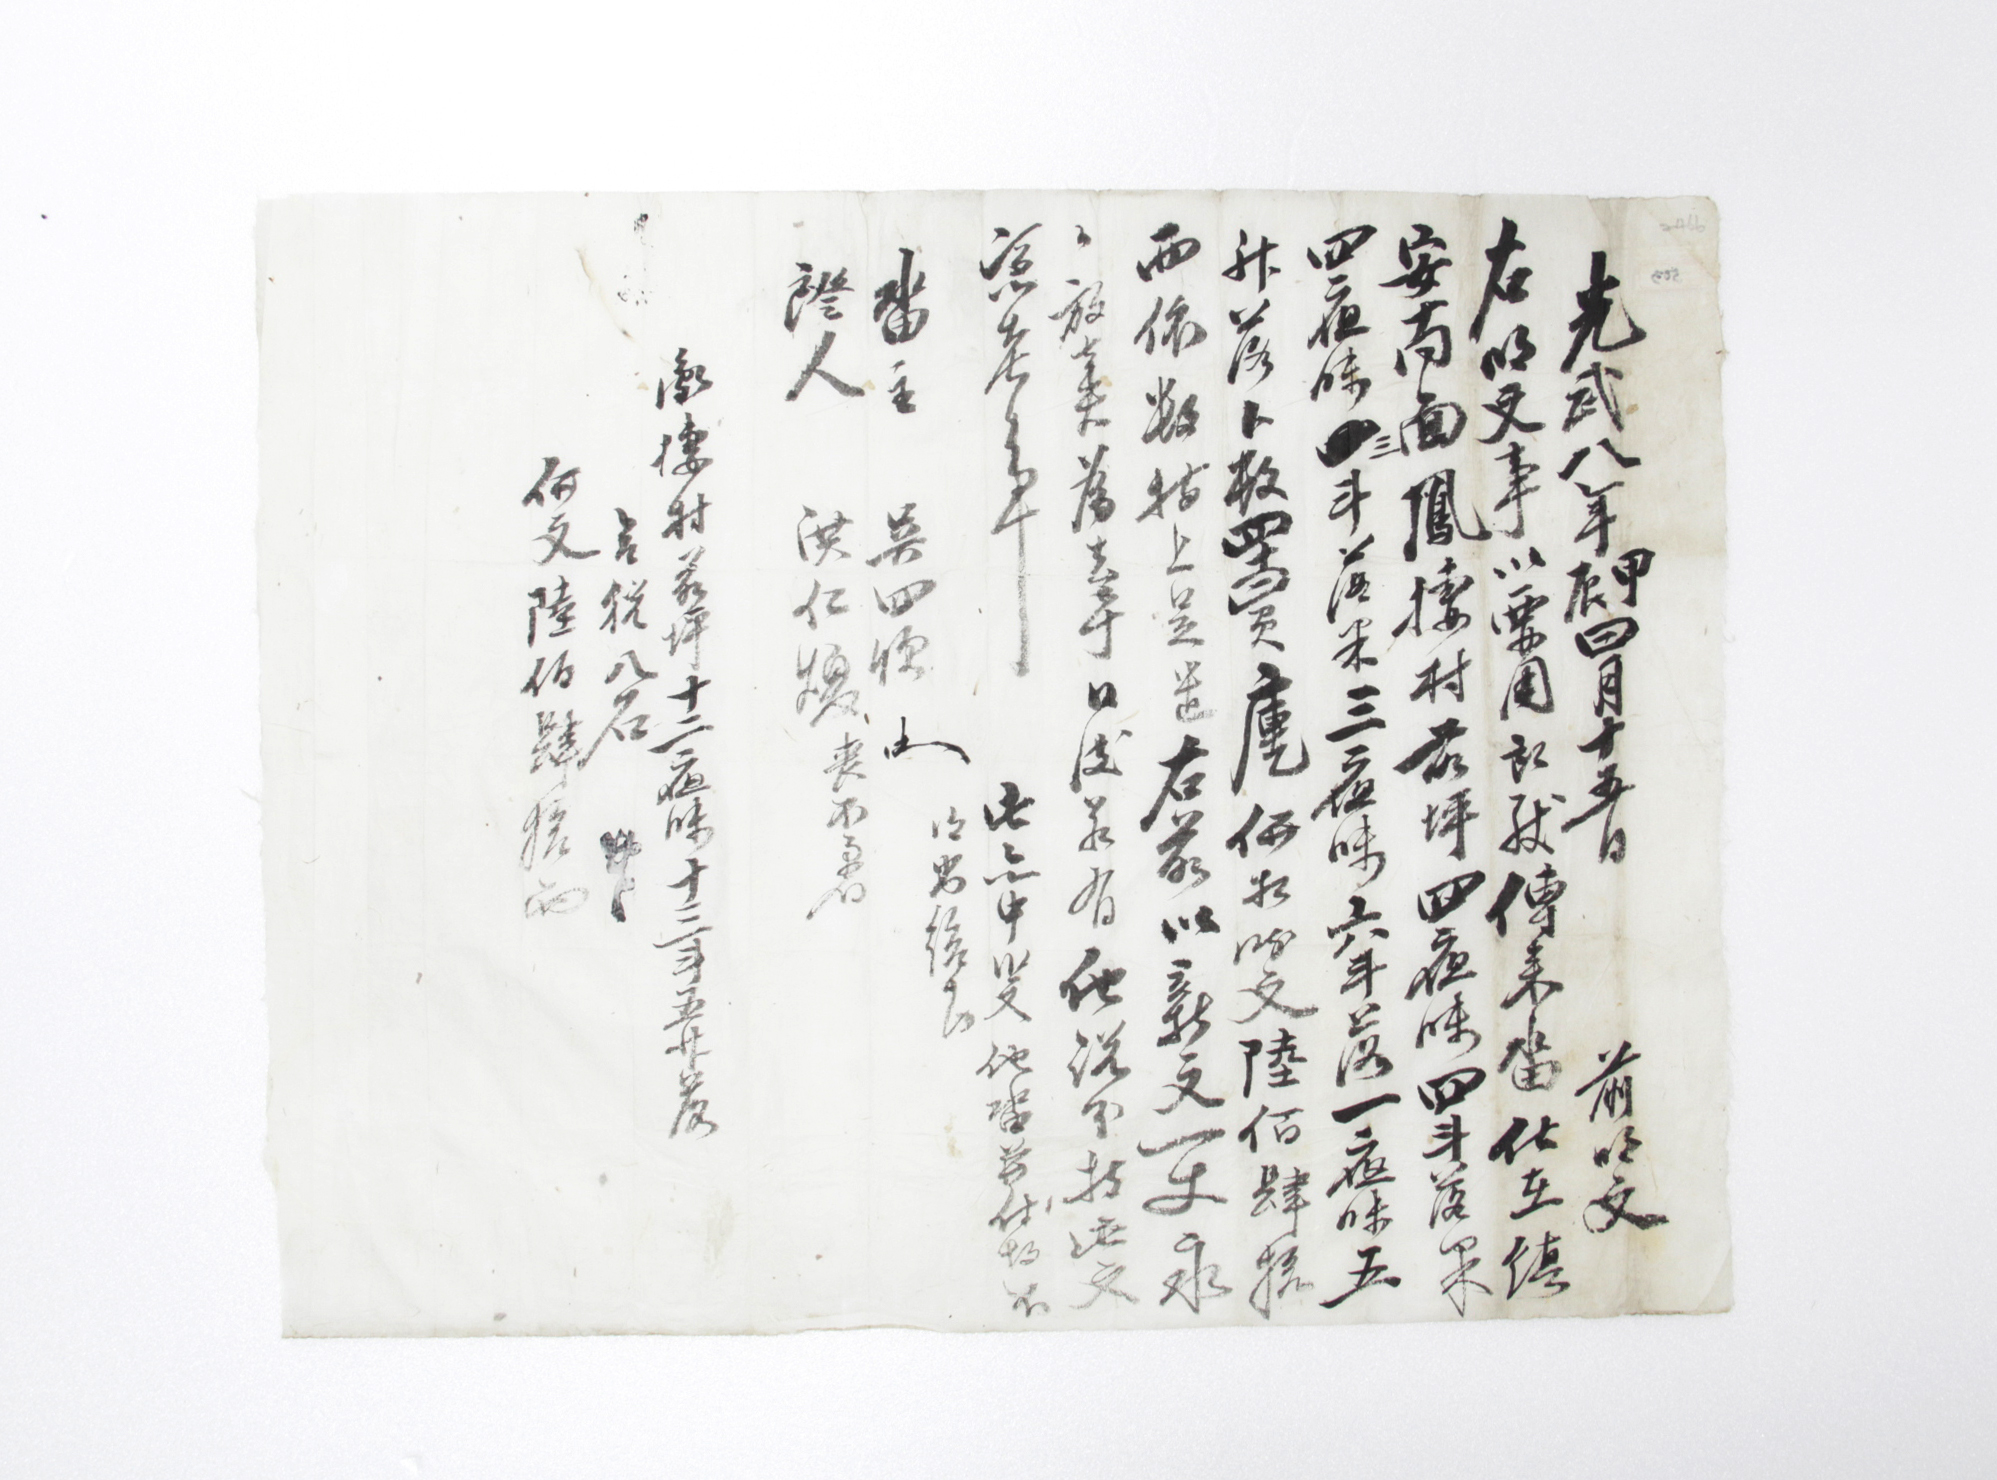 光武八年甲辰四月十五日 前明文
右明文事以要用所致傳來畓伏在鎭
安南面鳳棲村前坪四夜味四斗落果
四夜味三斗落果三夜味六斗落一夜味五
升落卜數四十四負庫価折時文陸佰肆拾
兩依數捧上是遣右前以新文一丈永
永放賣爲去乎日後若有他說不持此文
憑考事
此亦中段他畓並付故不
得出給事
畓主 吳四
證人 洪仁 喪不着
鳳棲村前坪十二夜味十三斗五升落
稅八石
価文陸佰肆拾兩